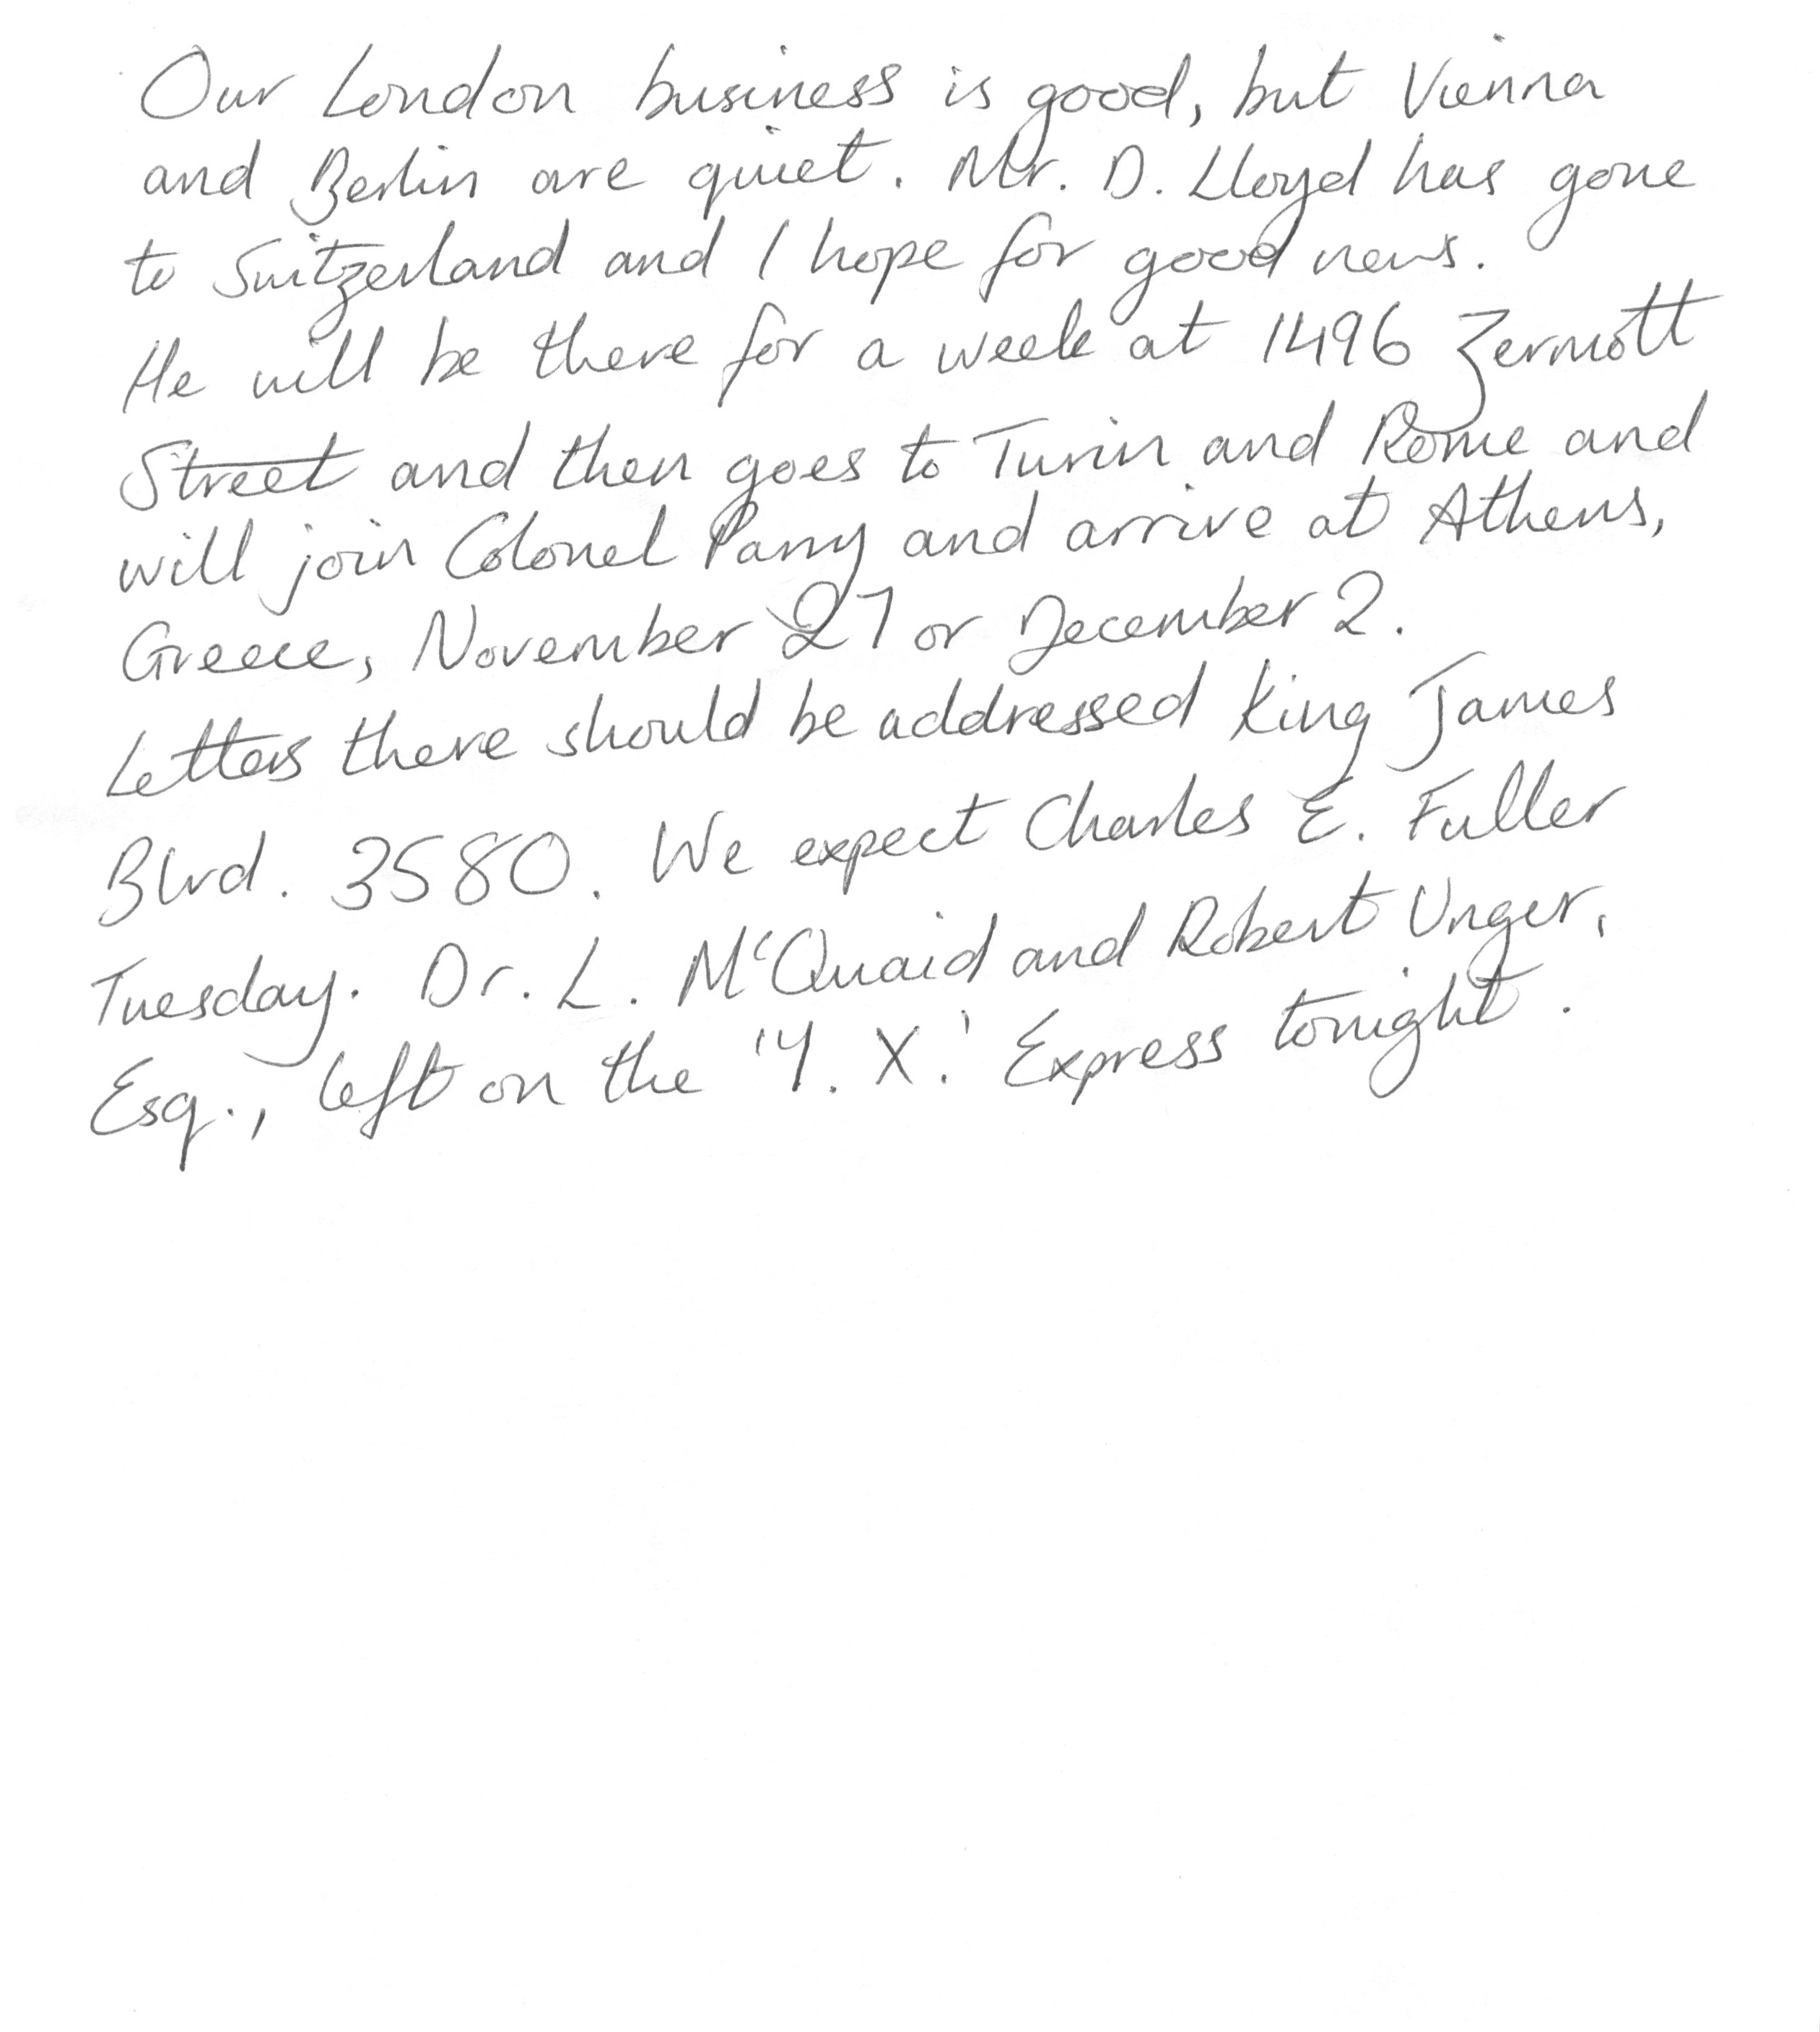 Our London business is good, but Vienna
and Berlin are quiet. Mr. D. Lloyd has gone
to Switzerland and I hope for good news.
He will be there for a week at 1496 Zermott
Street and then goes to Turin and Rome and
will join Colonel Parry and arrive at Athens,
Greece, November 27 or December 2.
Letters there should be addressed King James
Blvd. 3580. We expect Charles E. Fuller
Tuesday. Dr. L. McQuaid and Robert Unger,
Esq., left on the 'Y. X.' Express tonight.